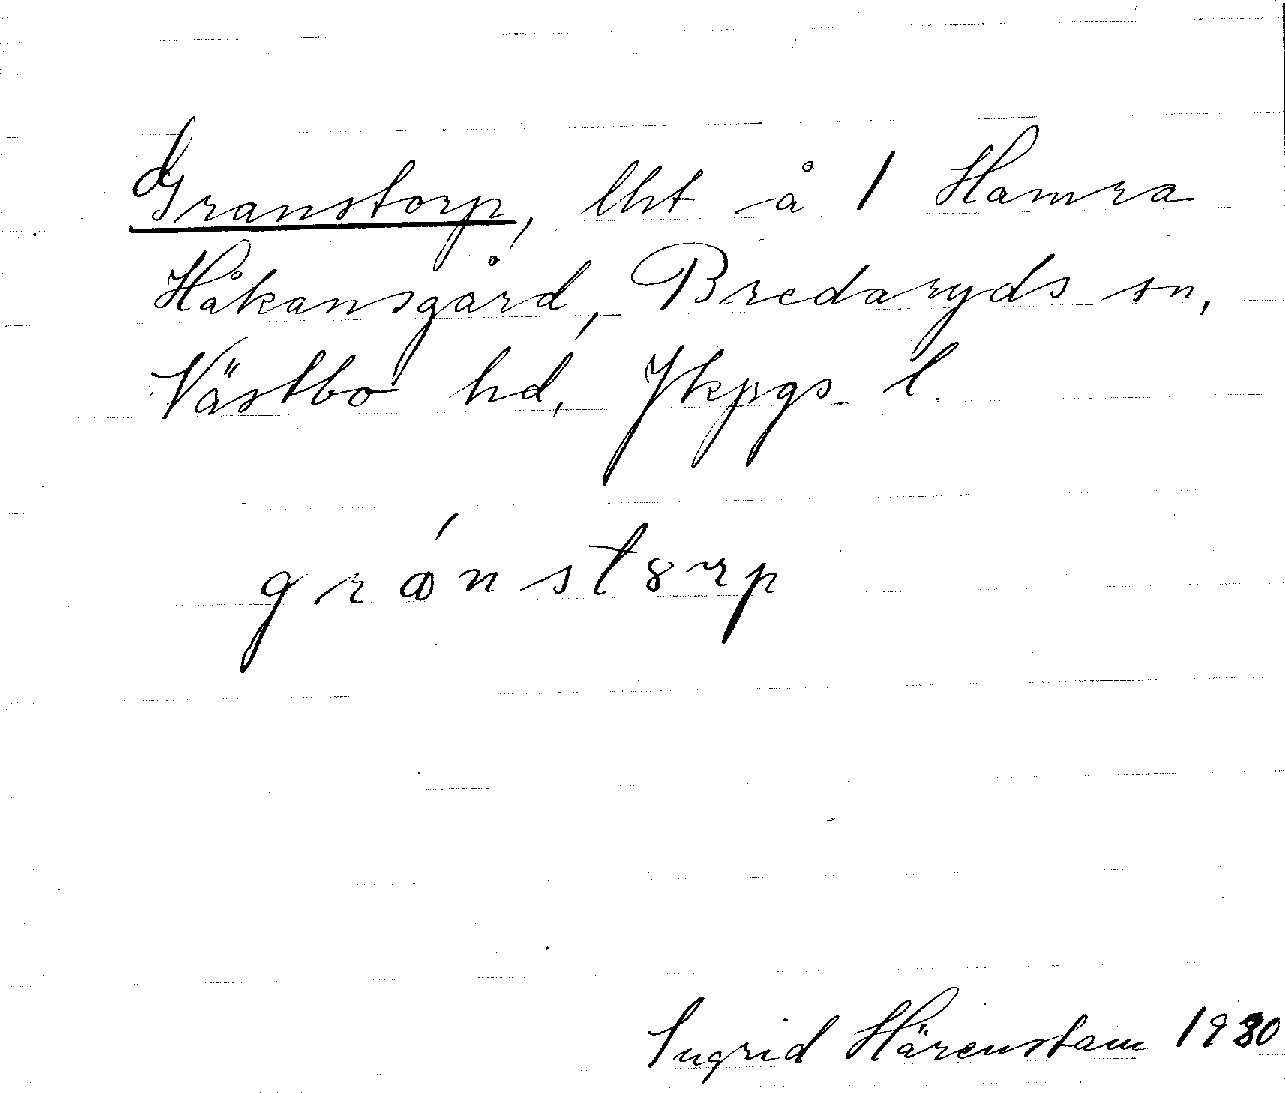 Granstorp, lht å 1 Hamra
Håkansgård, Bredaryds sn,
Västbo hd, Jkpgs l.
gránstorp
Ingrid Härenstam 1930